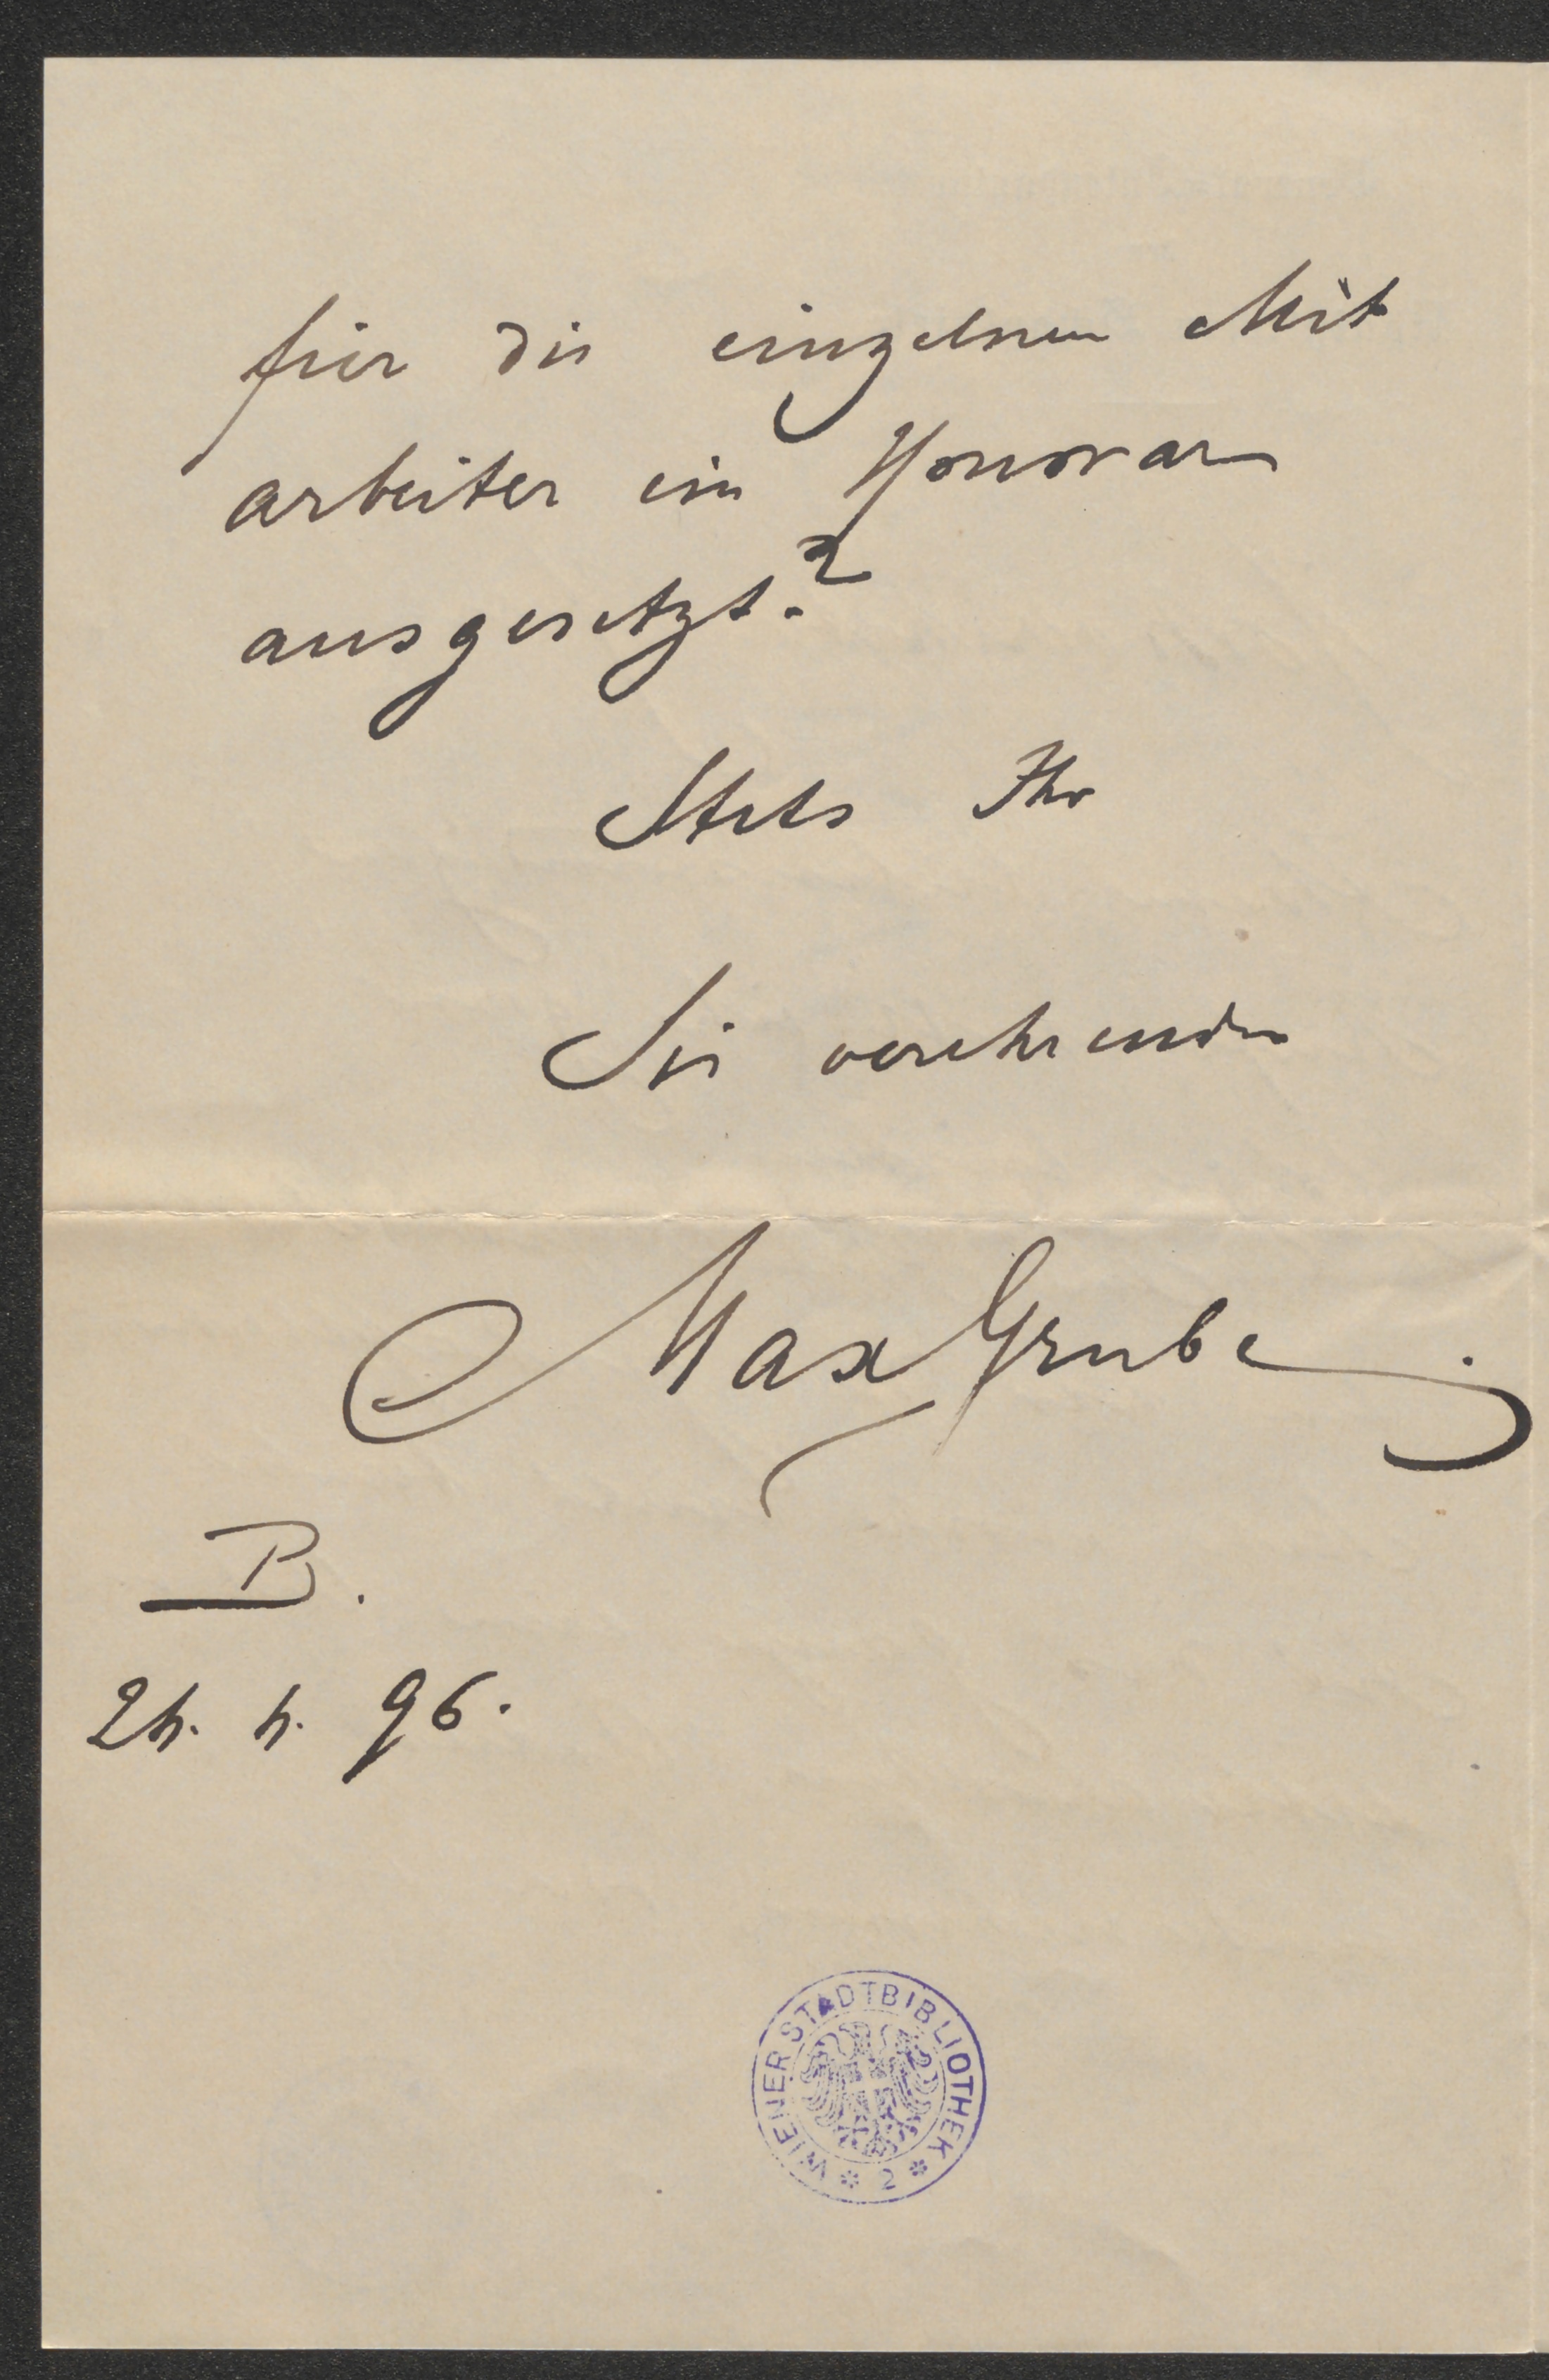 für die einzelnen Mit
arbeiter ein Honorar
ausgesetzt?
Stets Ihr
Sie verehrender
Max Grube.
B.
24. 4. 96.
WIENER STADTBIBLIOTHEK * 2 *